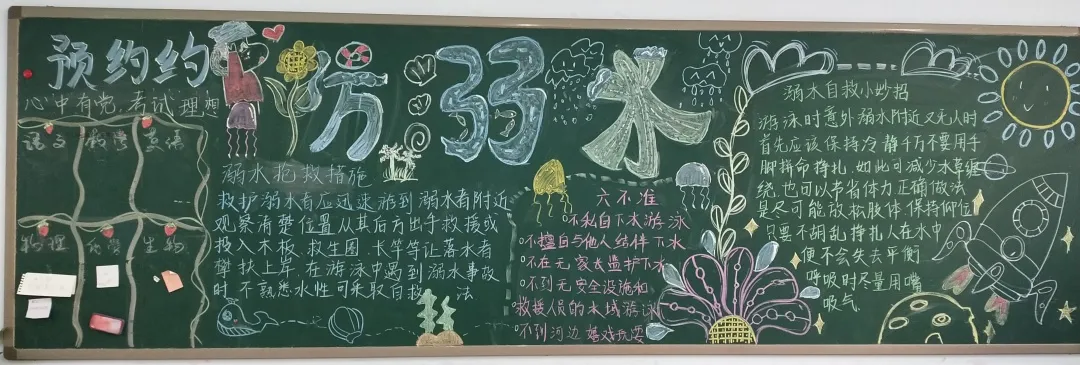 预约约
防弱水
心中有党,考试理想
语文 数学 英语
物理 化学 生物
溺水抢救措施
救护溺水者应迅速游到溺水者附近
观察清楚位置从其后方出手救援或
投入木板、救生圈、长等等让落水者
攀扶上岸,在游泳中遇到溺水事故
时,不熟悉水性可采取自救 法
六不准
不私自下水游泳
不擅自与他人结伴下水
不在无家长监护下水
不到无安全设施和
救援人员的水域游泳
不到河边嬉戏玩耍
溺水自救小妙招
游泳时意外溺水附近又无人时
首先应该保持冷静千万不要用手
脚拼命挣扎,如此可减少水草缠
绕,也可以节省体力正确做法
是尽可能放松肢体,保持仰位
只要不胡乱挣扎人在水中
便不会失去平衡
呼吸时尽量用嘴
吸气